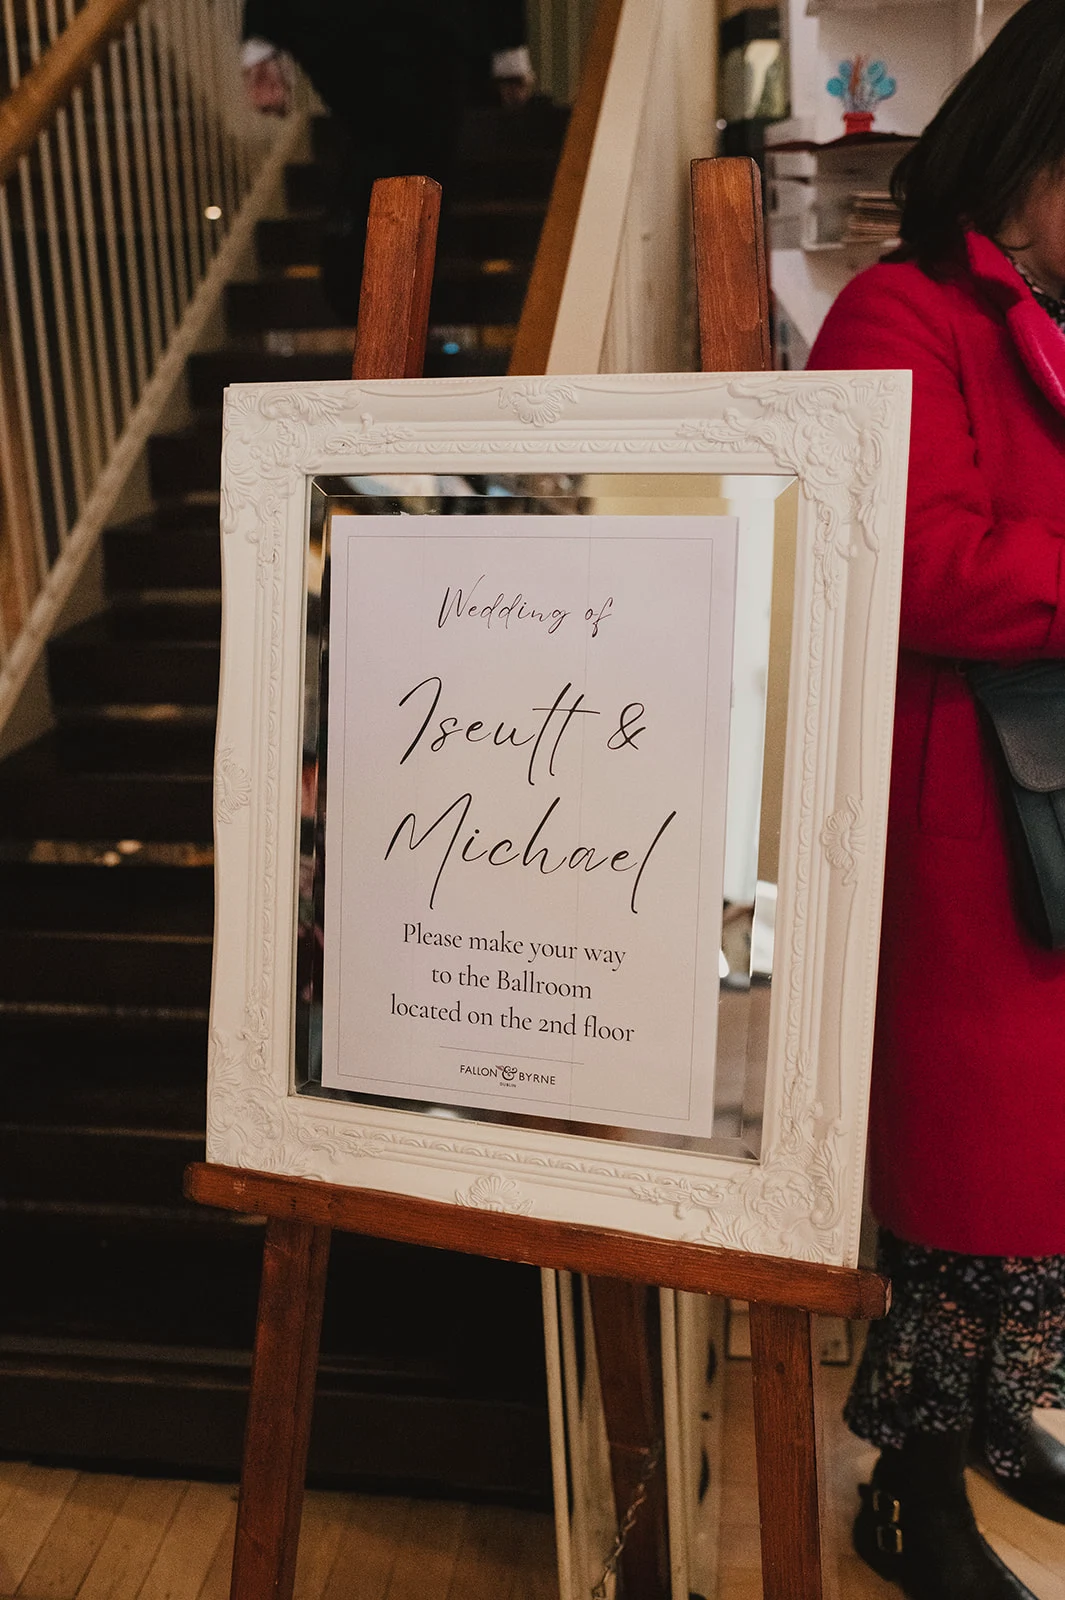 Wedding of
Iseult &
Michael
Please make your way
to the Ballroom
located on the 2nd floor
FALLON & BYRNE
DUBLIN